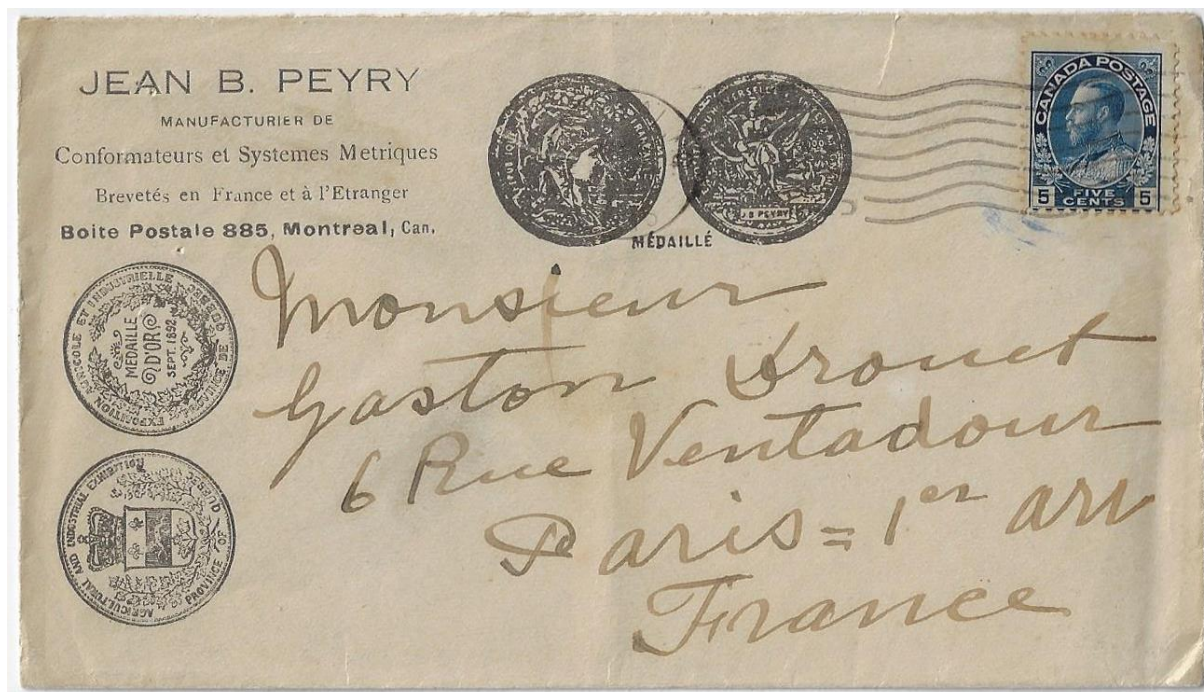 JEAN B. PEYRY
MANUFACTURIER DE
Conformateurs et Systemes Metriques
Brevetés en France et à l'Etranger
Boite Postale 885, Montreal, Can.
J B PEYRY
MÉDAILLÉ
CANADA POSTAGE
5 FIVE CENTS 5
EXPOSITION AGRICOLE ET INDUSTRIELLE
PROVINCE DE QUEBEC
MEDAILLE
D'OR
SEPT. 1892
AGRICULTURAL AND INDUSTRIAL EXHIBITION
PROVINCE OF QUEBEC
Monsieur
Gaston Drouet
6 Rue Ventadour
Paris = 1er arr
France